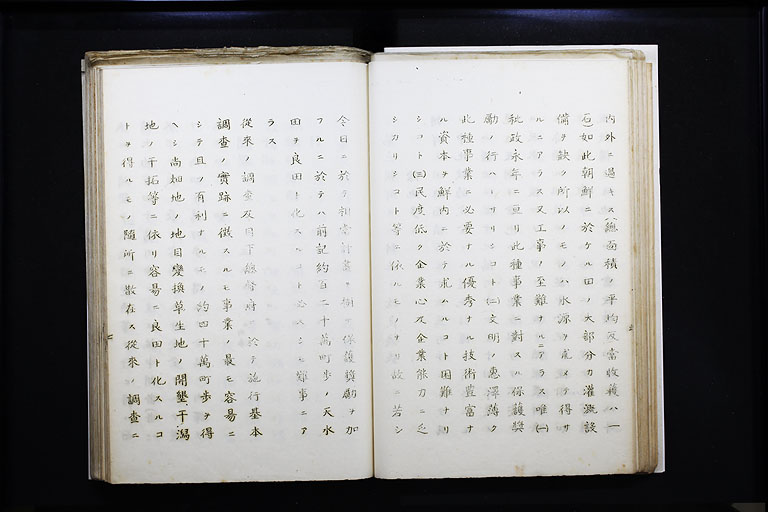 内外ニ過キス(總面積ノ平均反當收穫ハ一
石)如此朝鮮ニ於ケル田ノ大部分カ灌漑設
備ヲ缺ク所以ノモノハ水源ヲ索メテ得サ
ルニアラス又工事ノ至難ナルニアラス唯(一)
秕政永年ニ亘リ此種事業ニ對スル保護獎
勵ノ行ハレサリシコト(二)文明ノ惠澤薄ク
此種事業ニ必要ナル優秀ナル技術豊富ナ
ル資本ヲ鮮內ニ於テ求ムルコト困難ナリ
シコト(三)民度低ク企業心及企業能力ニ乏
シカリシコト等ニ依ルモノナリ故ニ若シ
今日ニ於テ相當計畫ヲ樹テ保護獎勵ヲ加
フルニ於テハ前記約百二十萬町步ノ天水
田ヲ良田ト化スルコト必スシモ難事ニア
ラス
從來ノ調査及目下總督府ニ於テ施行基本
調査ノ實跡ニ徴スルモ事業ノ最モ容易ニ
シテ且ツ有利ナルモノ約四十萬町步ヲ得
ヘシ尚畑地ノ地目變換草生地ノ開墾干潟
地ノ干拓等ニ依リ容易ニ良田ト化スルコ
トヲ得ルモノ隨所ニ散在ス從來ノ調査ニ